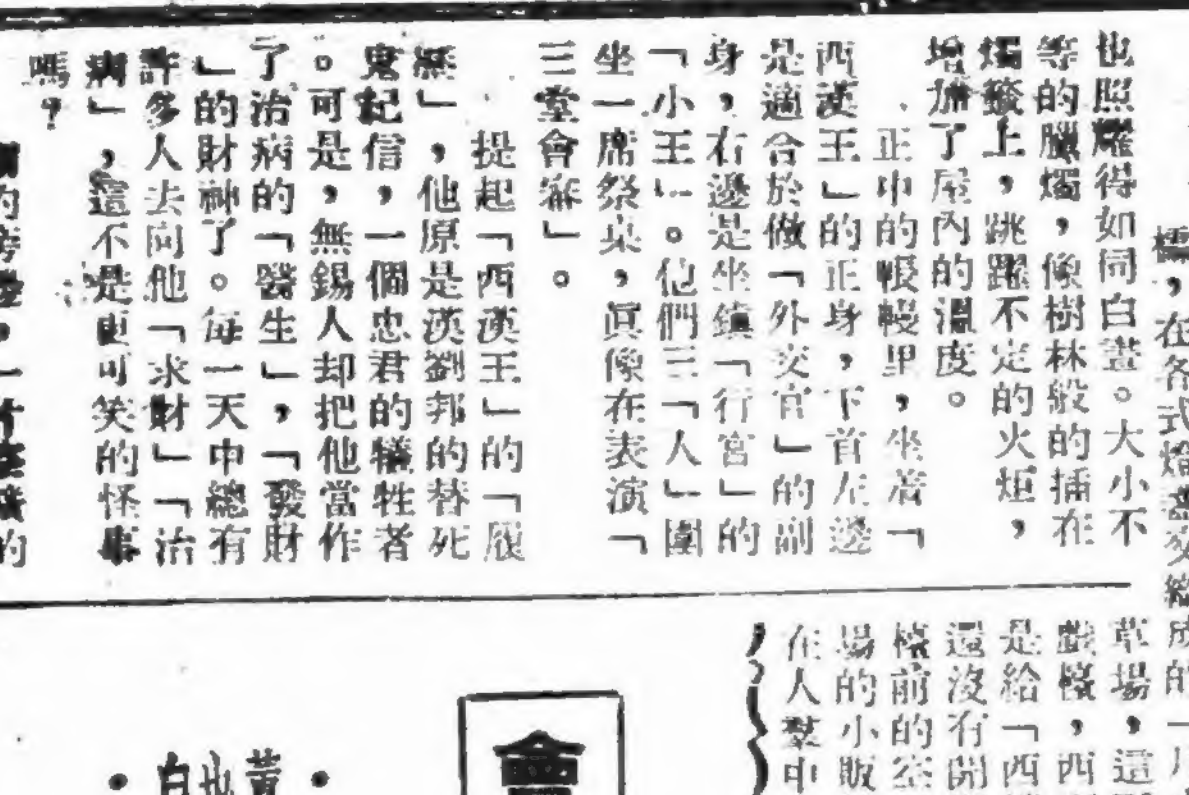 ，在各式燈
成的一
也照耀得如同白晝。大小不
等的臘燭，像樹林般的插在
燭籤上，跳躍不定的火炬，
增加了屋內的溫度。
正中的幔幔里，坐着「
西漢王」的正身，下首左邊
是適合於做「外交官」的副
身，右邊是坐鎮「行宮」的
「小王」。他們三「人」圍
坐一席祭桌，眞像在表演「
三堂會審」。
提起「西漢王」的「履
歷」，他原是漢劉邦的替死
鬼記信，一個忠君的犧牲者
。可是，無錫人却把他當作
了治病的「醫生」，「發財
」的財神了。每一天中總有
許多人去向他「求財」「治
病」，這不是更可笑的怪事
嗎？
草場，這
戲檯，西
是給「西
還沒有開
檯前的空
場的小販
在人羣中
會
·黃也白·